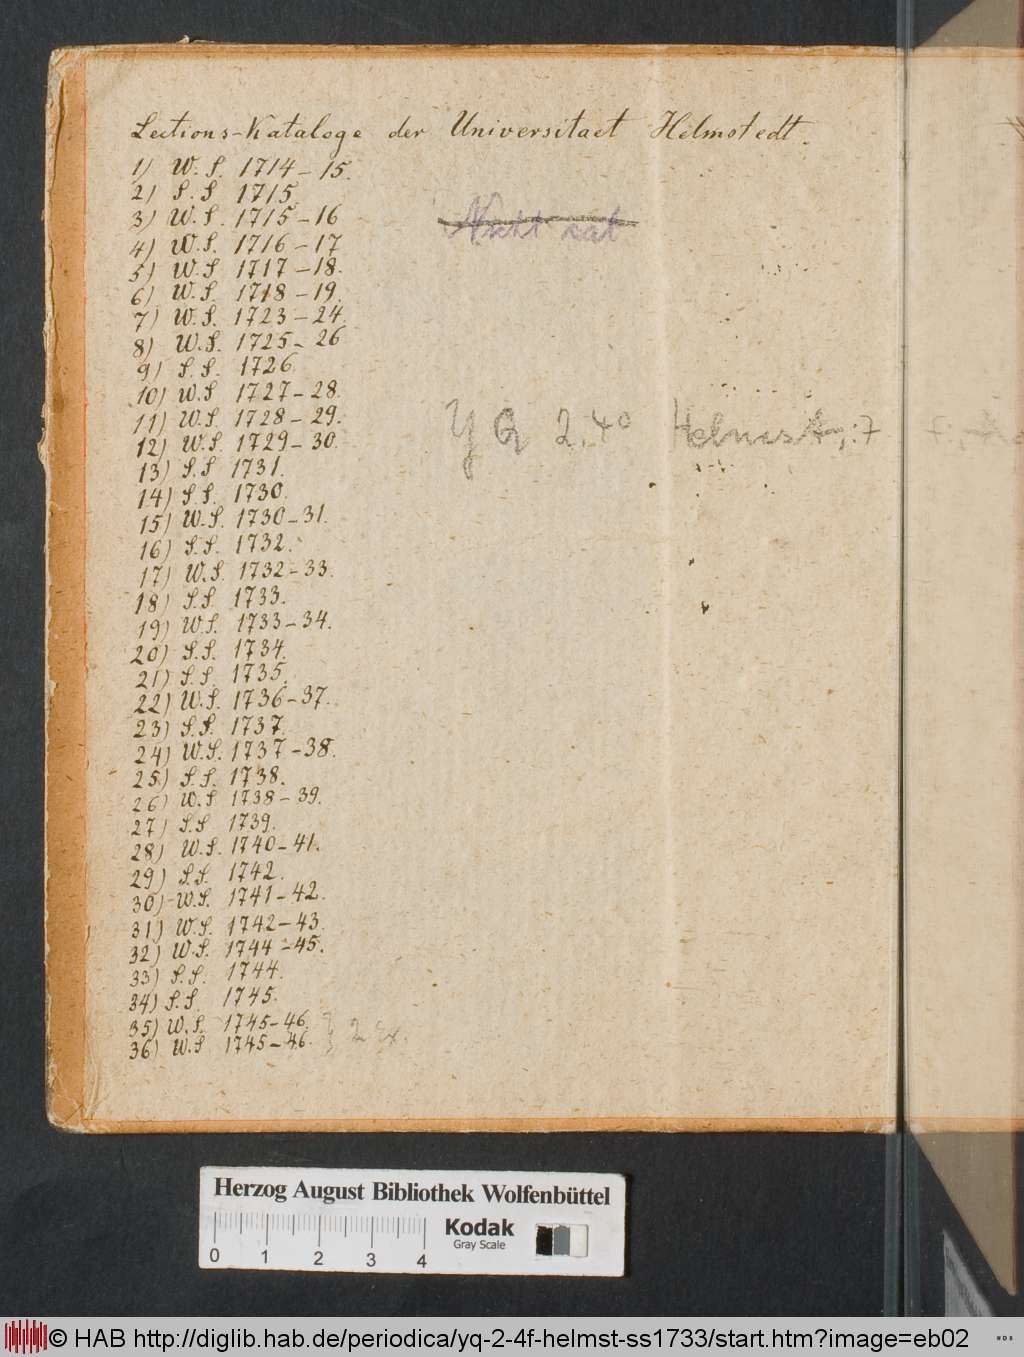 Lections-Kataloge der Universitaet Helmstedt.
1) W. S. 1714-15.
2) S. S 1715.
3) W. S. 1715-16
4) W. S. 1716-17
5) W. S 1717-18.
6) W. S. 1718-19.
7) W. S. 1723-24.
8) W. S. 1725-26
9) S. S. 1726.
10) W. S 1727-28.
11) W. S. 1728-29.
12) W. S. 1729-30.
13) S. S 1731.
14) S. S. 1730.
15) W. S. 1730-31.
16) S. S. 1732.
17) W. S. 1732-33.
18) S. S 1733.
19) W. S. 1733-34.
20) S. S. 1734.
21) S. S. 1735.
22) W. S. 1736-37.
23) S. S. 1737.
24) W. S. 1737-38.
25) S. S. 1738.
26) W. S 1738-39.
27) S. S 1739.
28) W. S. 1740-41.
29) S. S. 1742.
30) W. S. 1741-42.
31) W. S. 1742-43.
32) W. S. 1744-45.
33) S. S. 1744.
34) S. S. 1745.
35) W. S. 1745-46.
36) W. S 1745-46. } 2 Ex.
Nicht kat
YQ 2. 4° Helmst.
Herzog August Bibliothek Wolfenbüttel
0 1 2 3 4
Kodak
Gray Scale
© HAB http://diglib.hab.de/periodica/yq-2-4f-helmst-ss1733/start.htm?image=eb02